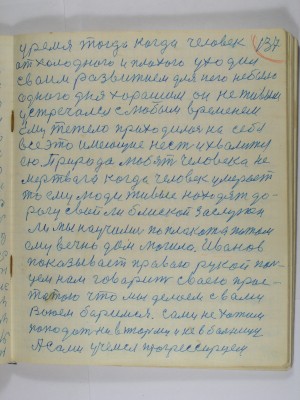 время тогда когда человек 137
от холодного и плохого уходил
своим развытием для него небыло
одного дня хорошим он не живым
встречался с любым временем
ему тежело приходилось на себе
все это имеющие нести и хвалитца
ею. Природа любит человека не
мертвага когда человек умерает
то ему люди живые находят до-
рогу свои ли близкой заслужен
ли мы научились поплакать а потом
ему вечно дом могила. Иванов
показывает правою рукой
нам говорит своею прос-
татою что мы делаем с вами
Воюем боримся. Сами не хотим
попадать на в тюрму и не в больницу
А сами учимся прогрессируем